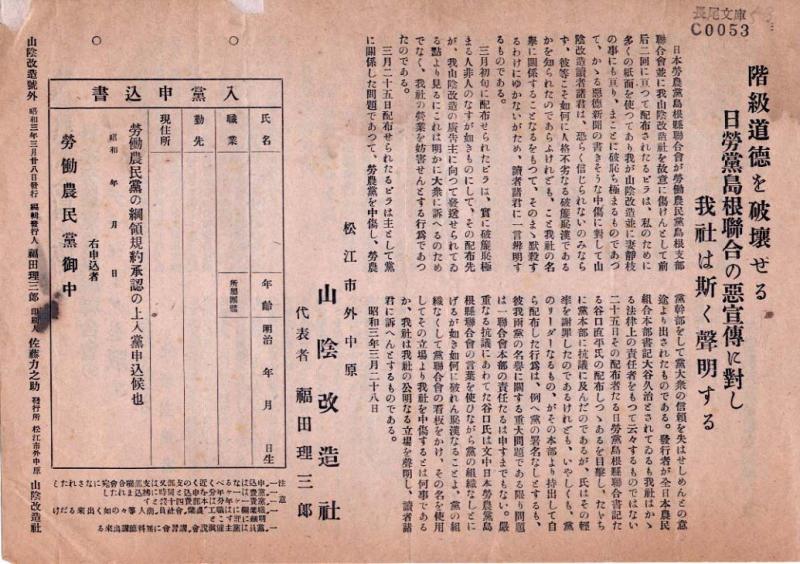 長尾文庫
C0053
階級道德を破壞せる
日勞黨島根聯合の惡宣傳に對し
我社は斯く聲明する
日本勞農黨島根縣聯合會が勞働農民黨島根支部
聯合會並に我山陰改造社を故意に傷けんとして前
后二回に亘つて配布されたるビラは、私のために
多くの紙面を使つてあり我が山陰改造並に妻靜枝
の事にも亘り、まことに破恥ら極まるものであつ
て、かゝる惡德新聞の書きそうな中傷に對して山
陰改造讀者諸君は、恐らく信じられないのみなら
ず、彼等こそ如何に人格不劣なる破廉恥漢である
かを知られたのであらふけれども、こと我社の名
譽に關係することなるをもつて、そのまゝ默殺す
るわけにゆかないがため、讀者諸君に一言辨明す
るものである。
三月初旬に配布せられたビラは、實に破廉恥極
まる人非人のなすが如きものにして、その配布先
が、我山陰改造の廣告主に向つて發送せられてゐ
る點より見るにこれは明かに大衆に訴へるのため
でなく、我社の營業を妨害せんとする行爲であつ
たのである。
三月二十五日配布せられたるビラは主として黨
に關係した問題であつて、勞農黨を中傷し、勞農
黨幹部をして黨大衆の信賴を失はせしめんとの意
途より出されたものである。發行者が全日本農民
組合本部書記大谷久治とされてゐるも我社はかゝ
る法律上の責任者をもつて云々するものではない
二十五日その配布者たる日勞黨島根縣聯合書記た
る谷口直平氏の配布しつゝあるを目擊し、たゞち
に黨本部に抗議に及んだのであるが、氏はその輕
率を謝罪したのであるけれども、いやしくも、黨
のリーダーなるもの、がその本部より持出して自
ら配布した行爲は、例へ黨の署名なしとするも、
彼我兩黨の名譽に關する重大問題である限り問題
は一聯合會本部の責任たるは申すまでもない。嚴
重なる抗議にあわてた谷口氏は文中日本勞農黨島
根縣聯合會の言葉を使ひながら黨の組織なしとに
げるが如き如何に破れん恥漢なることよ、黨の組
織なくして黨聯合會の看板をかけ、その名を使用
してその立場より我社を中傷するとは何事である
か、我社は我社の公明なる立場を聲明し、讀者諸
君に訴へんとするものである。
昭和三年三月二十八日
松江市外中原
山陰改造社
代表者 福田理三郎
入黨申込書
氏名
年齡 明治 年 月 日生
職業
所屬團體
勤先
現住所
勞働農民黨の綱領規約承認の上入黨申込候也
昭和 年 月 日
右申込者
勞働農民黨御中
山陰改造號外 昭和三年三月廿八日發行 編輯發行人 福田理三郎 印刷人 佐藤力之助 發行所 松江市外中原 山陰改造社